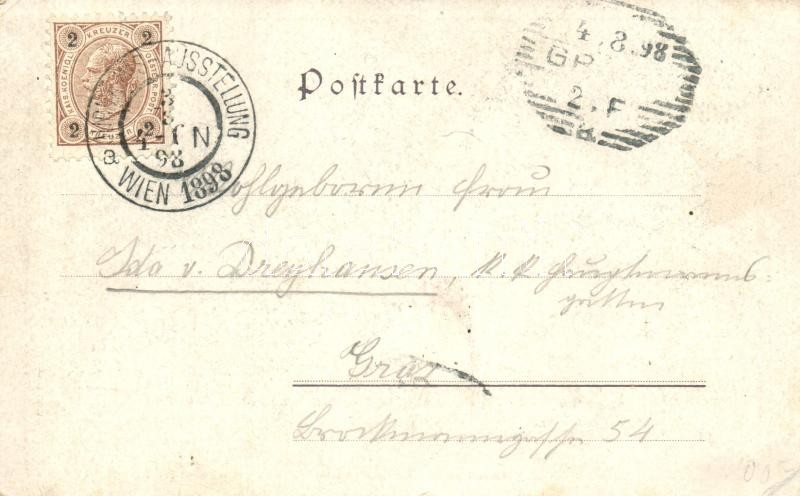 2 KREUZER 2
KAIS. KOENIGL. OESTERR. POST
2 2
AUSSTELLUNG
3
8
4-1 N
98
a
WIEN 1898
Postkarte.
4.8.98
2.F
Wohlgeboren Frau
Ida v. Dreyhausen, K. K. Hauptmanns-
gattin
Graz
Brockmanngasse 54